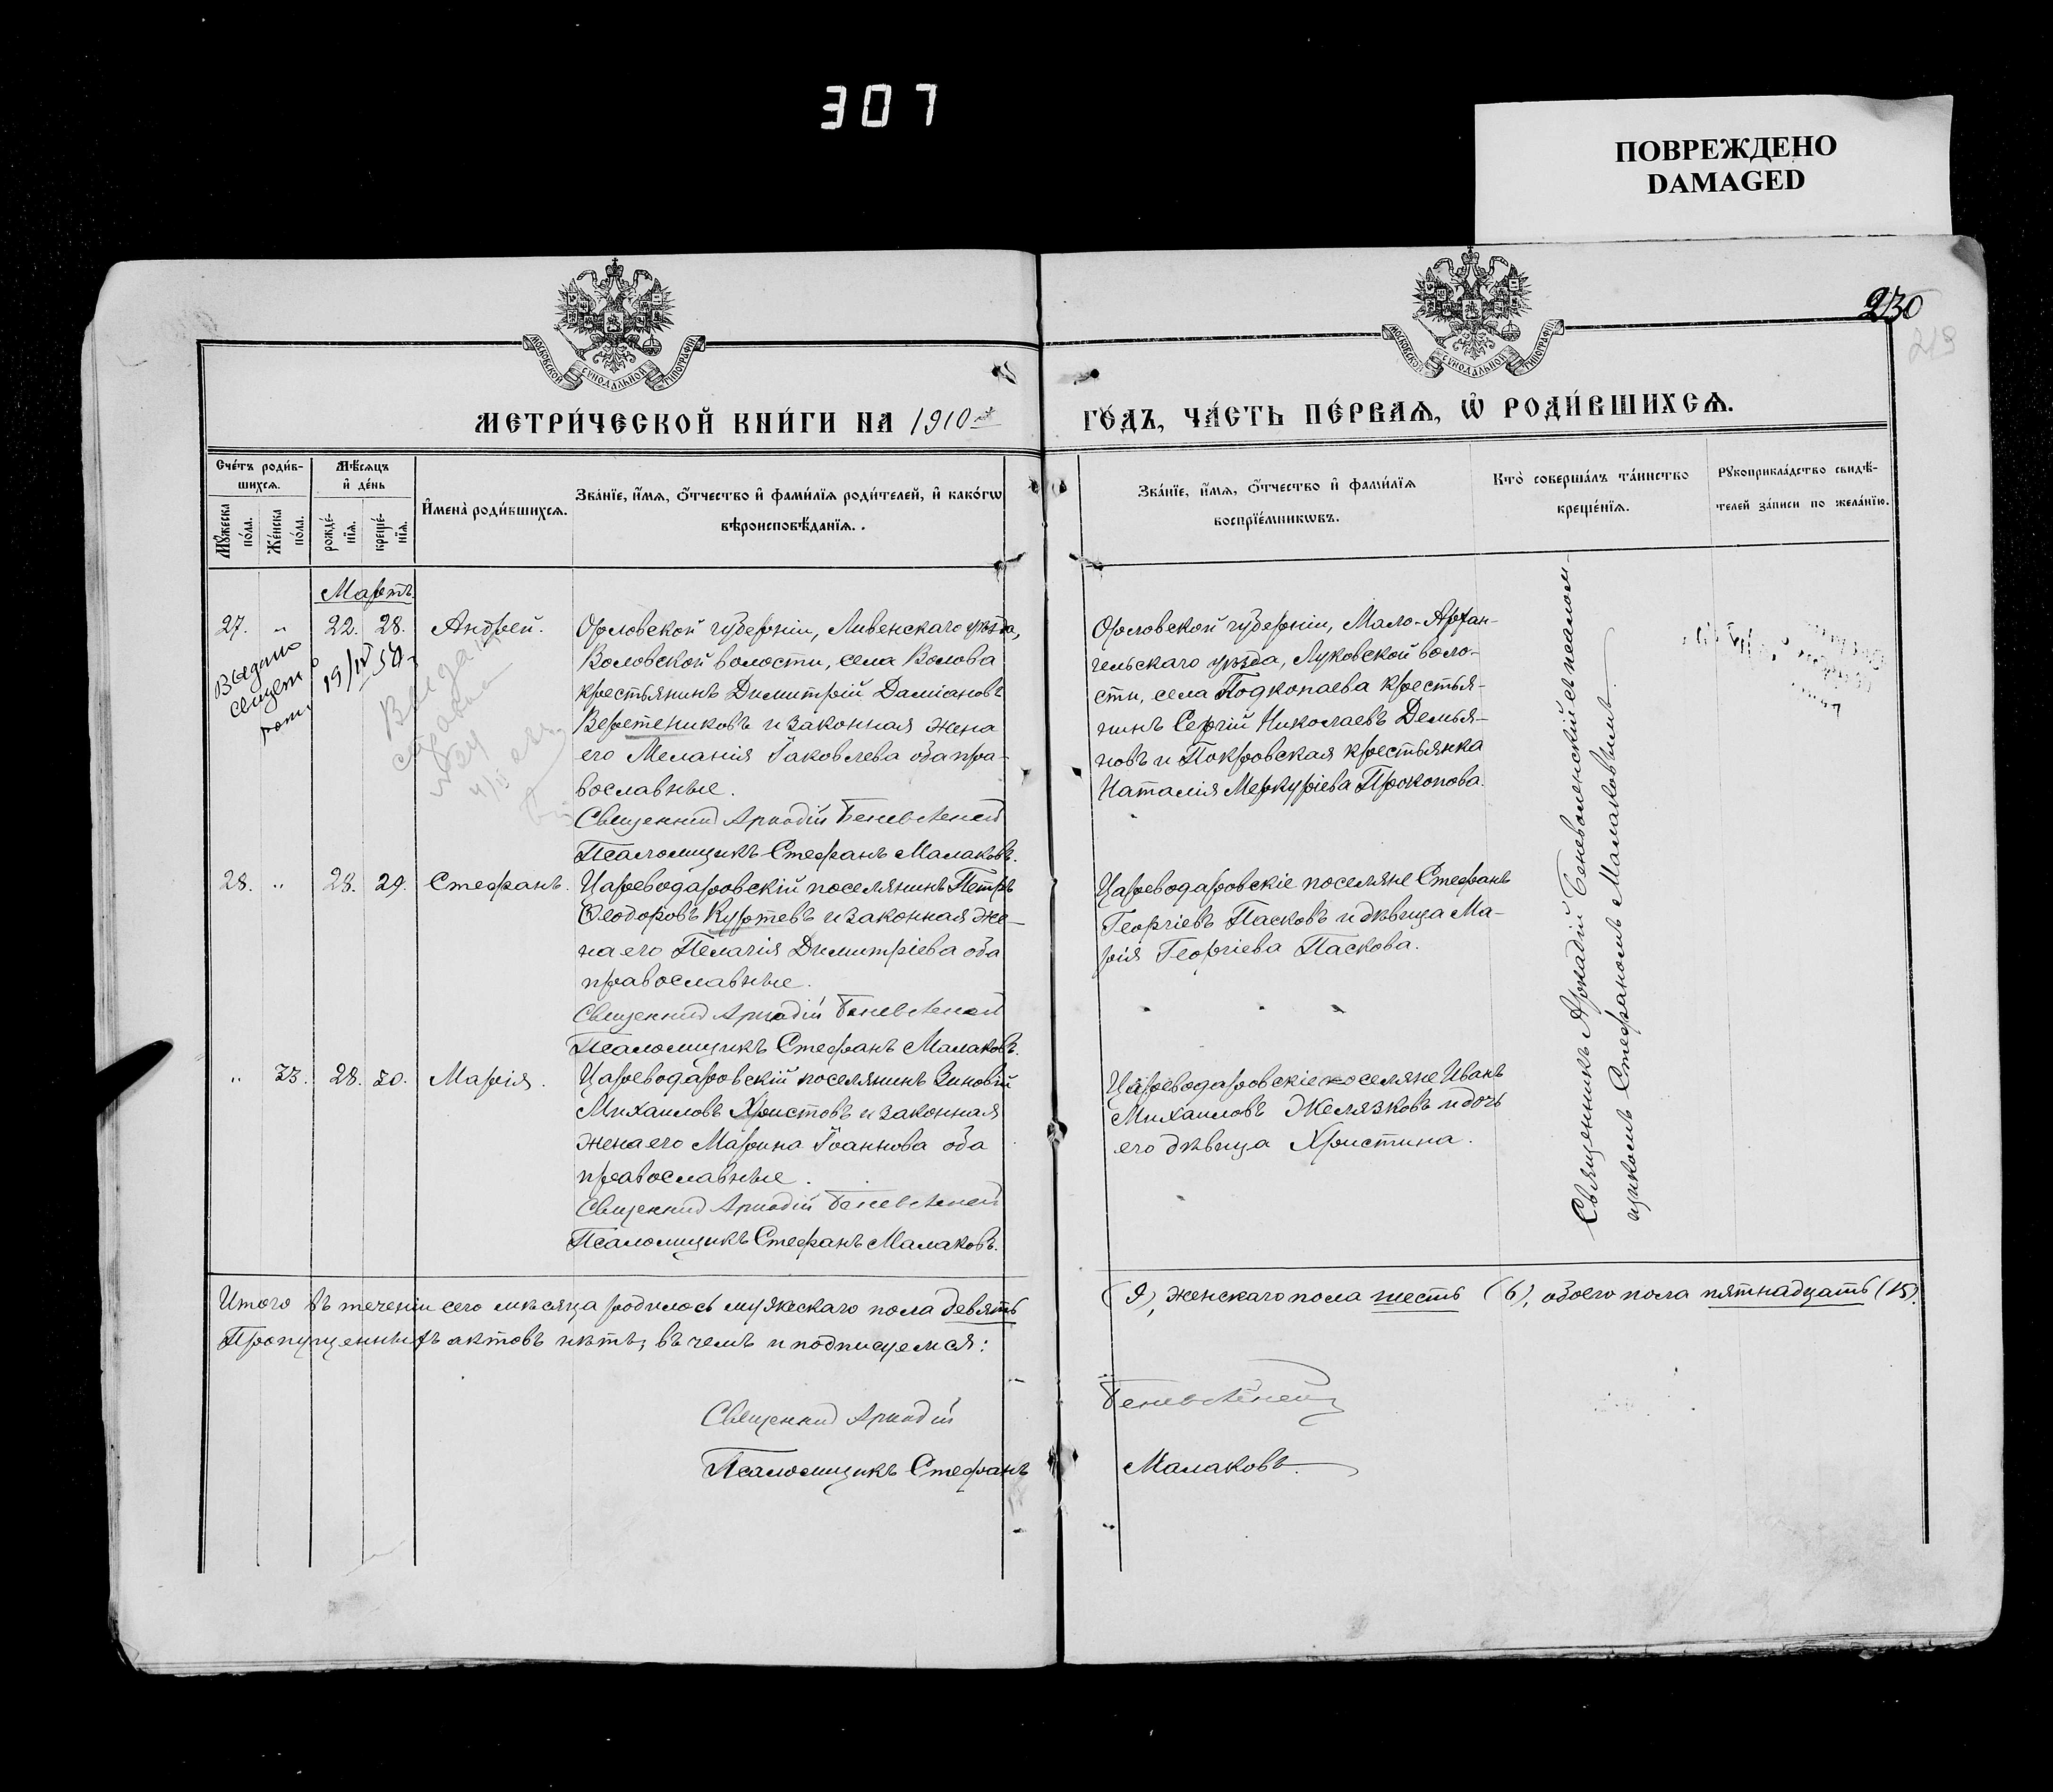 307
ПОВРЕЖДЕНО
DAMAGED
230
219
МОСКОВСКОЙ СѴНОДАЛЬНОЙ ТИПОГРАФІИ
МОСКОВСКОЙ СѴНОДАЛЬНОЙ ТИПОГРАФІИ
МЕТРИ́ЧЕСКОЙ КНИ́ГИ НА 1910й
ГО́ДЪ, ЧА́СТЬ ПЕ́РВАѦ, Ѡ҆ РОДИ́ВШИХСѦ.
Сче́тъ роди́в-
шихсѧ.
Мꙋжеска по́ла.
Же́нска по́ла.
Мѣ́сѧцъ
и҆ де́нь
рожде́-
нїѧ.
креще́-
нїѧ.
И҆мена̀ роди́вшихсѧ.
Зва́нїе, и҆́мѧ, ѻ҆́тчество и҆ фами́лїѧ роди́телей, и҆ како́гѡ
вѣроисповѣ́данїѧ.
Зва́нїе, и҆́мѧ, ѻ҆́тчество и҆ фами́лїѧ
воспрїе́мникѡвъ.
Кто̀ соверша́лъ та́инство
креще́нїѧ.
Рꙋкоприкла́дство свидѣ́-
телей за́писи по жела́нїю.
Мартъ.
27. " 22. 28. Андрей.
Орловской губерніи, Ливенскаго уѣзда,
Воловской волости, села Волова
крестьянинъ Димитрій Даміановъ
Веретениковъ и законная жена
его Меланія Іаковлева оба пра-
вославные.
Священник Аркадій Беневоленский
Псаломщикъ Стефанъ Малаковъ.
Выдано
19/IV 54
Выдана
справка
Орловской губерніи, Мало-Архан-
гельскаго уѣзда, Луковской воло-
сти, села Подкопаева крестья-
нинъ Сергій Николаевъ Демья-
новъ и Покровская крестьянка
Наталія Меркуріева Прокопова.
28. " 28. 29. Стефанъ.
Цареводаровскій поселянинъ Петръ
Ѳеодоровъ Куртевъ и законная же-
на его Пелагія Димитріева оба
православные.
Священник Аркадій Беневоленский
Псаломщикъ Стефанъ Малаковъ.
Цареводаровскіе поселяне Стефанъ
Георгіевъ Пасковъ и дѣвица Ма-
рія Георгіева Паскова.
" 33. 28. 30. Марія.
Цареводаровскій поселянинъ Зиновій
Михаиловъ Христовъ и законная
жена его Марина Іоаннова оба
православные.
Священник Аркадій Беневоленский
Псаломщикъ Стефанъ Малаковъ.
Цареводаровскіе поселяне Иванъ
Михаиловъ Желязковъ и дочь
его дѣвица Христина.
Священникъ Аркадій Беневоленскій съ псалом-
щикомъ Стефаномъ Малаковымъ.
Итого въ теченіи сего мѣсяца родилось мужескаго пола девять
(9), женскаго пола шесть (6), обоего пола пятнадцать (15).
Пропущенныхъ актовъ нѣтъ, въ чемъ и подписуемся:
Священник Аркадій
Беневоленский
Псаломщикъ Стефанъ
Малаковъ.